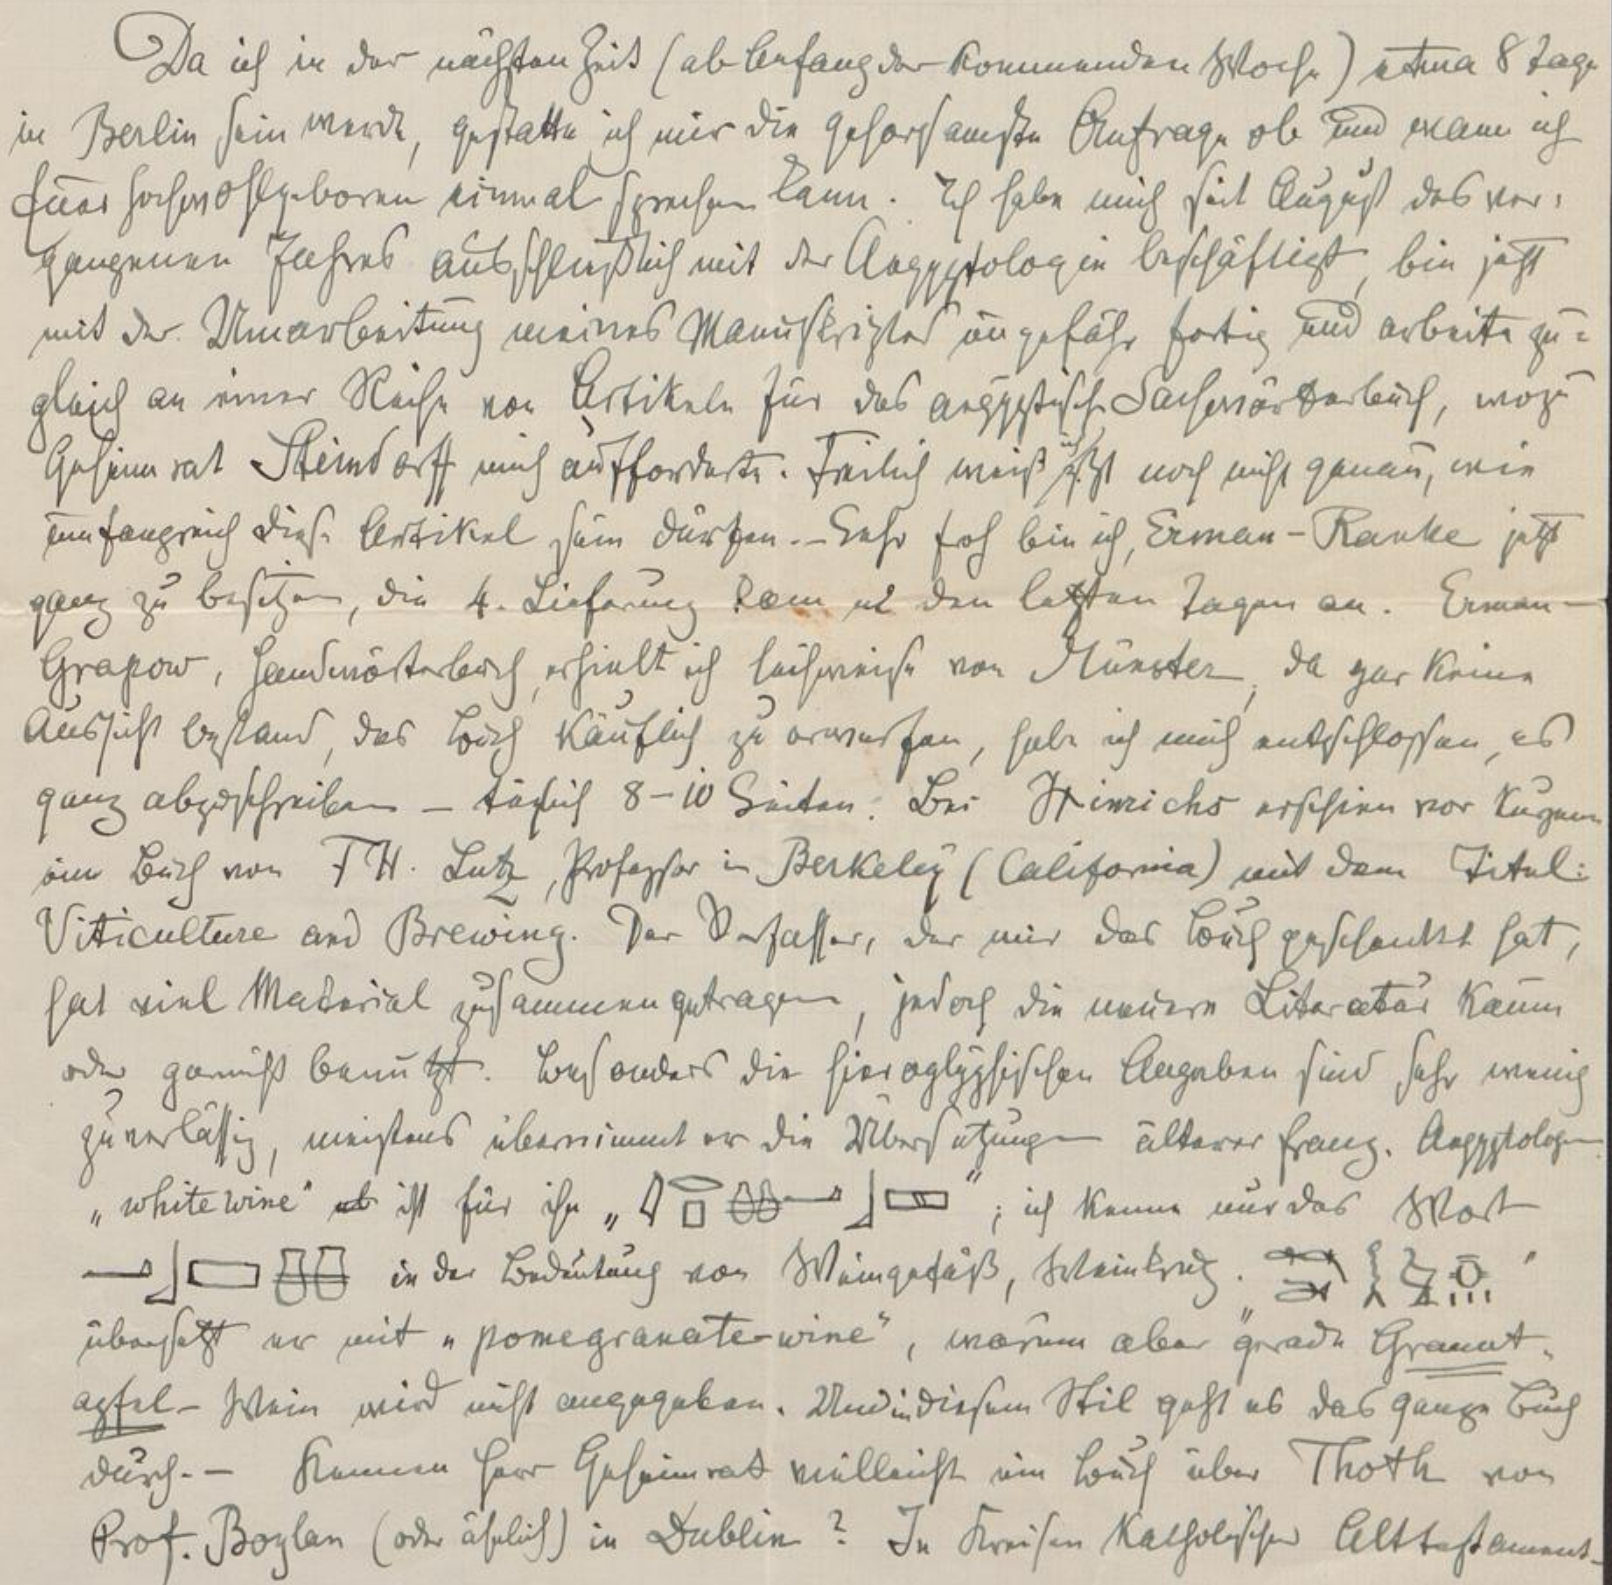 Da ich in der nächsten Zeit (ab Anfang der kommenden Woche) etwa 8 Tage
in Berlin sein werde, gestatte ich mir die gehorsamste Anfrage ob und wann ich
Euer Hochwohlgeboren einmal sprechen kann. Ich habe mich seit August des ver-
gangenen Jahres ausschließlich mit der Aegyptologie beschäftigt, bin jetzt
mit der Umarbeitung meines Manuskriptes ungefähr fertig und arbeite zu-
gleich an einer Reihe von Artikeln für das aegyptische Sachwörterbuch, wozu
Geheimrat Steindorff mich aufforderte. Freilich weiß ich jetzt noch nicht genau, wie
umfangreich diese Artikel sein dürfen. – Sehr froh bin ich, Erman-Ranke jetzt
ganz zu besitzen, die 4. Lieferung kam in den letzten Tagen an. Erman-
Grapow, Handwörterbuch, erhielt ich leihweise von Münster, da gar keine
Aussicht bestand, das Buch käuflich zu erwerben, habe ich mich entschlossen, es
ganz abzuschreiben – täglich 8–10 Seiten. Bei Hinrichs erschien vor kurzem
ein Buch von F H. Lutz, Professor in Berkeley (California) mit dem Titel:
Viticulture and Brewing. Der Verfasser, der mir das Buch geschenkt hat,
hat viel Material zusammengetragen, jedoch die neuere Literatur kaum
oder garnicht benutzt. Besonders die hieroglyphischen Angaben sind sehr wenig
zuverlässig, meistens übernimmt er die Übersetzungen älterer franz. Aegyptologen
„white wine" ist für ihn „ "; ich kenne nur das Wort
in der Bedeutung von Weingefäß, Weinkrug. "
übersetzt er mit „pomegranate-wine", warum aber gerade Granat-
apfel-Wein wird nicht angegeben. Und in diesem Stil geht es das ganze Buch
durch. – Kennen Herr Geheimrat vielleicht ein Buch über Thoth von
Prof. Boylan (oder ähnlich) in Dublin? In Kreisen katholischer Alttestament-